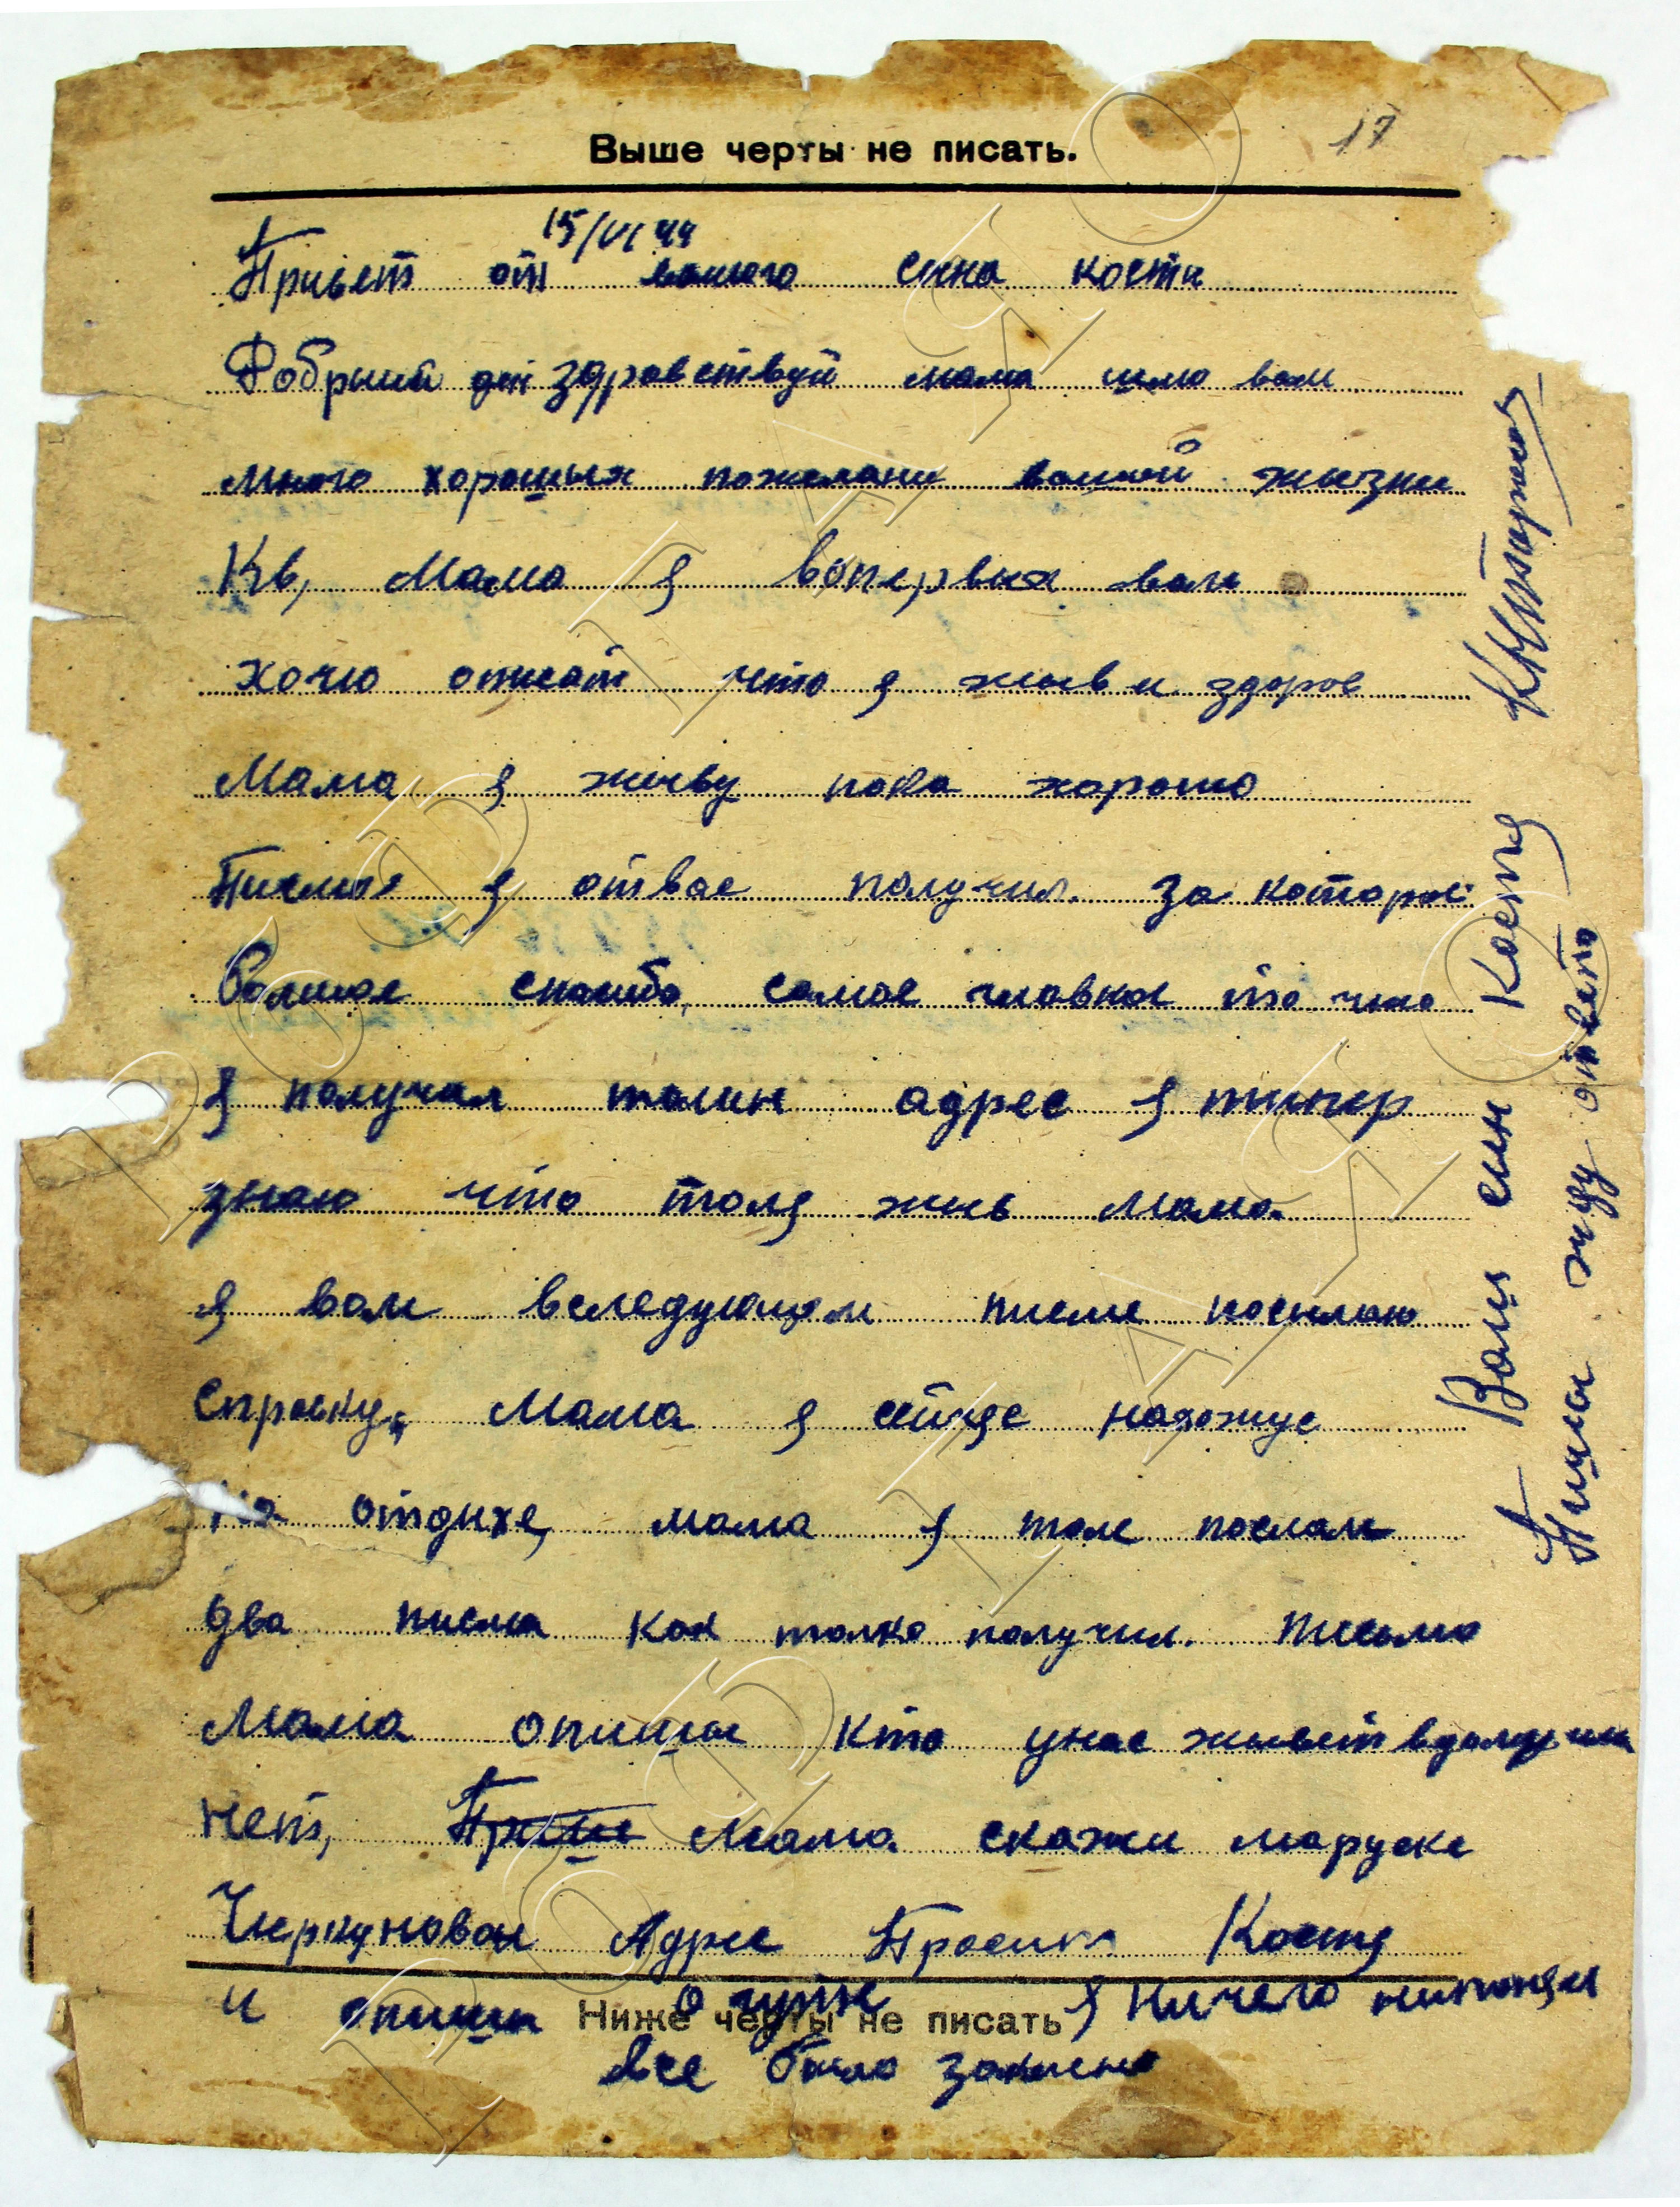 17
Выше черты не писать.
15/VI 44
Привет от вашого сина кости
Добрый ден здравствуй мама шлю вам
много хорошых пожелани вашой жизни
Кв, Мама я воперvых вам
хочю описат что я жив и здоров
Мама я живу пока хорошо
Писмо я отвас получил за которое
Болшое спасибо, самое гловное то что
я получил толин адрес я типер
знаю что толя жив Мама
я вам вследующем писме посилаю
справку, Мама я сейчас нахожус
на отдихе, мама я толе послал
два писма как толко получил писмо
Мама опишы кто унас живет вдому или
нет, Мама скажи маруске
Адрес Просит Костя
и опишы Ниже черты не писать я ничего нипонял
все было
Ваш син Костя
Пишы жду ответа